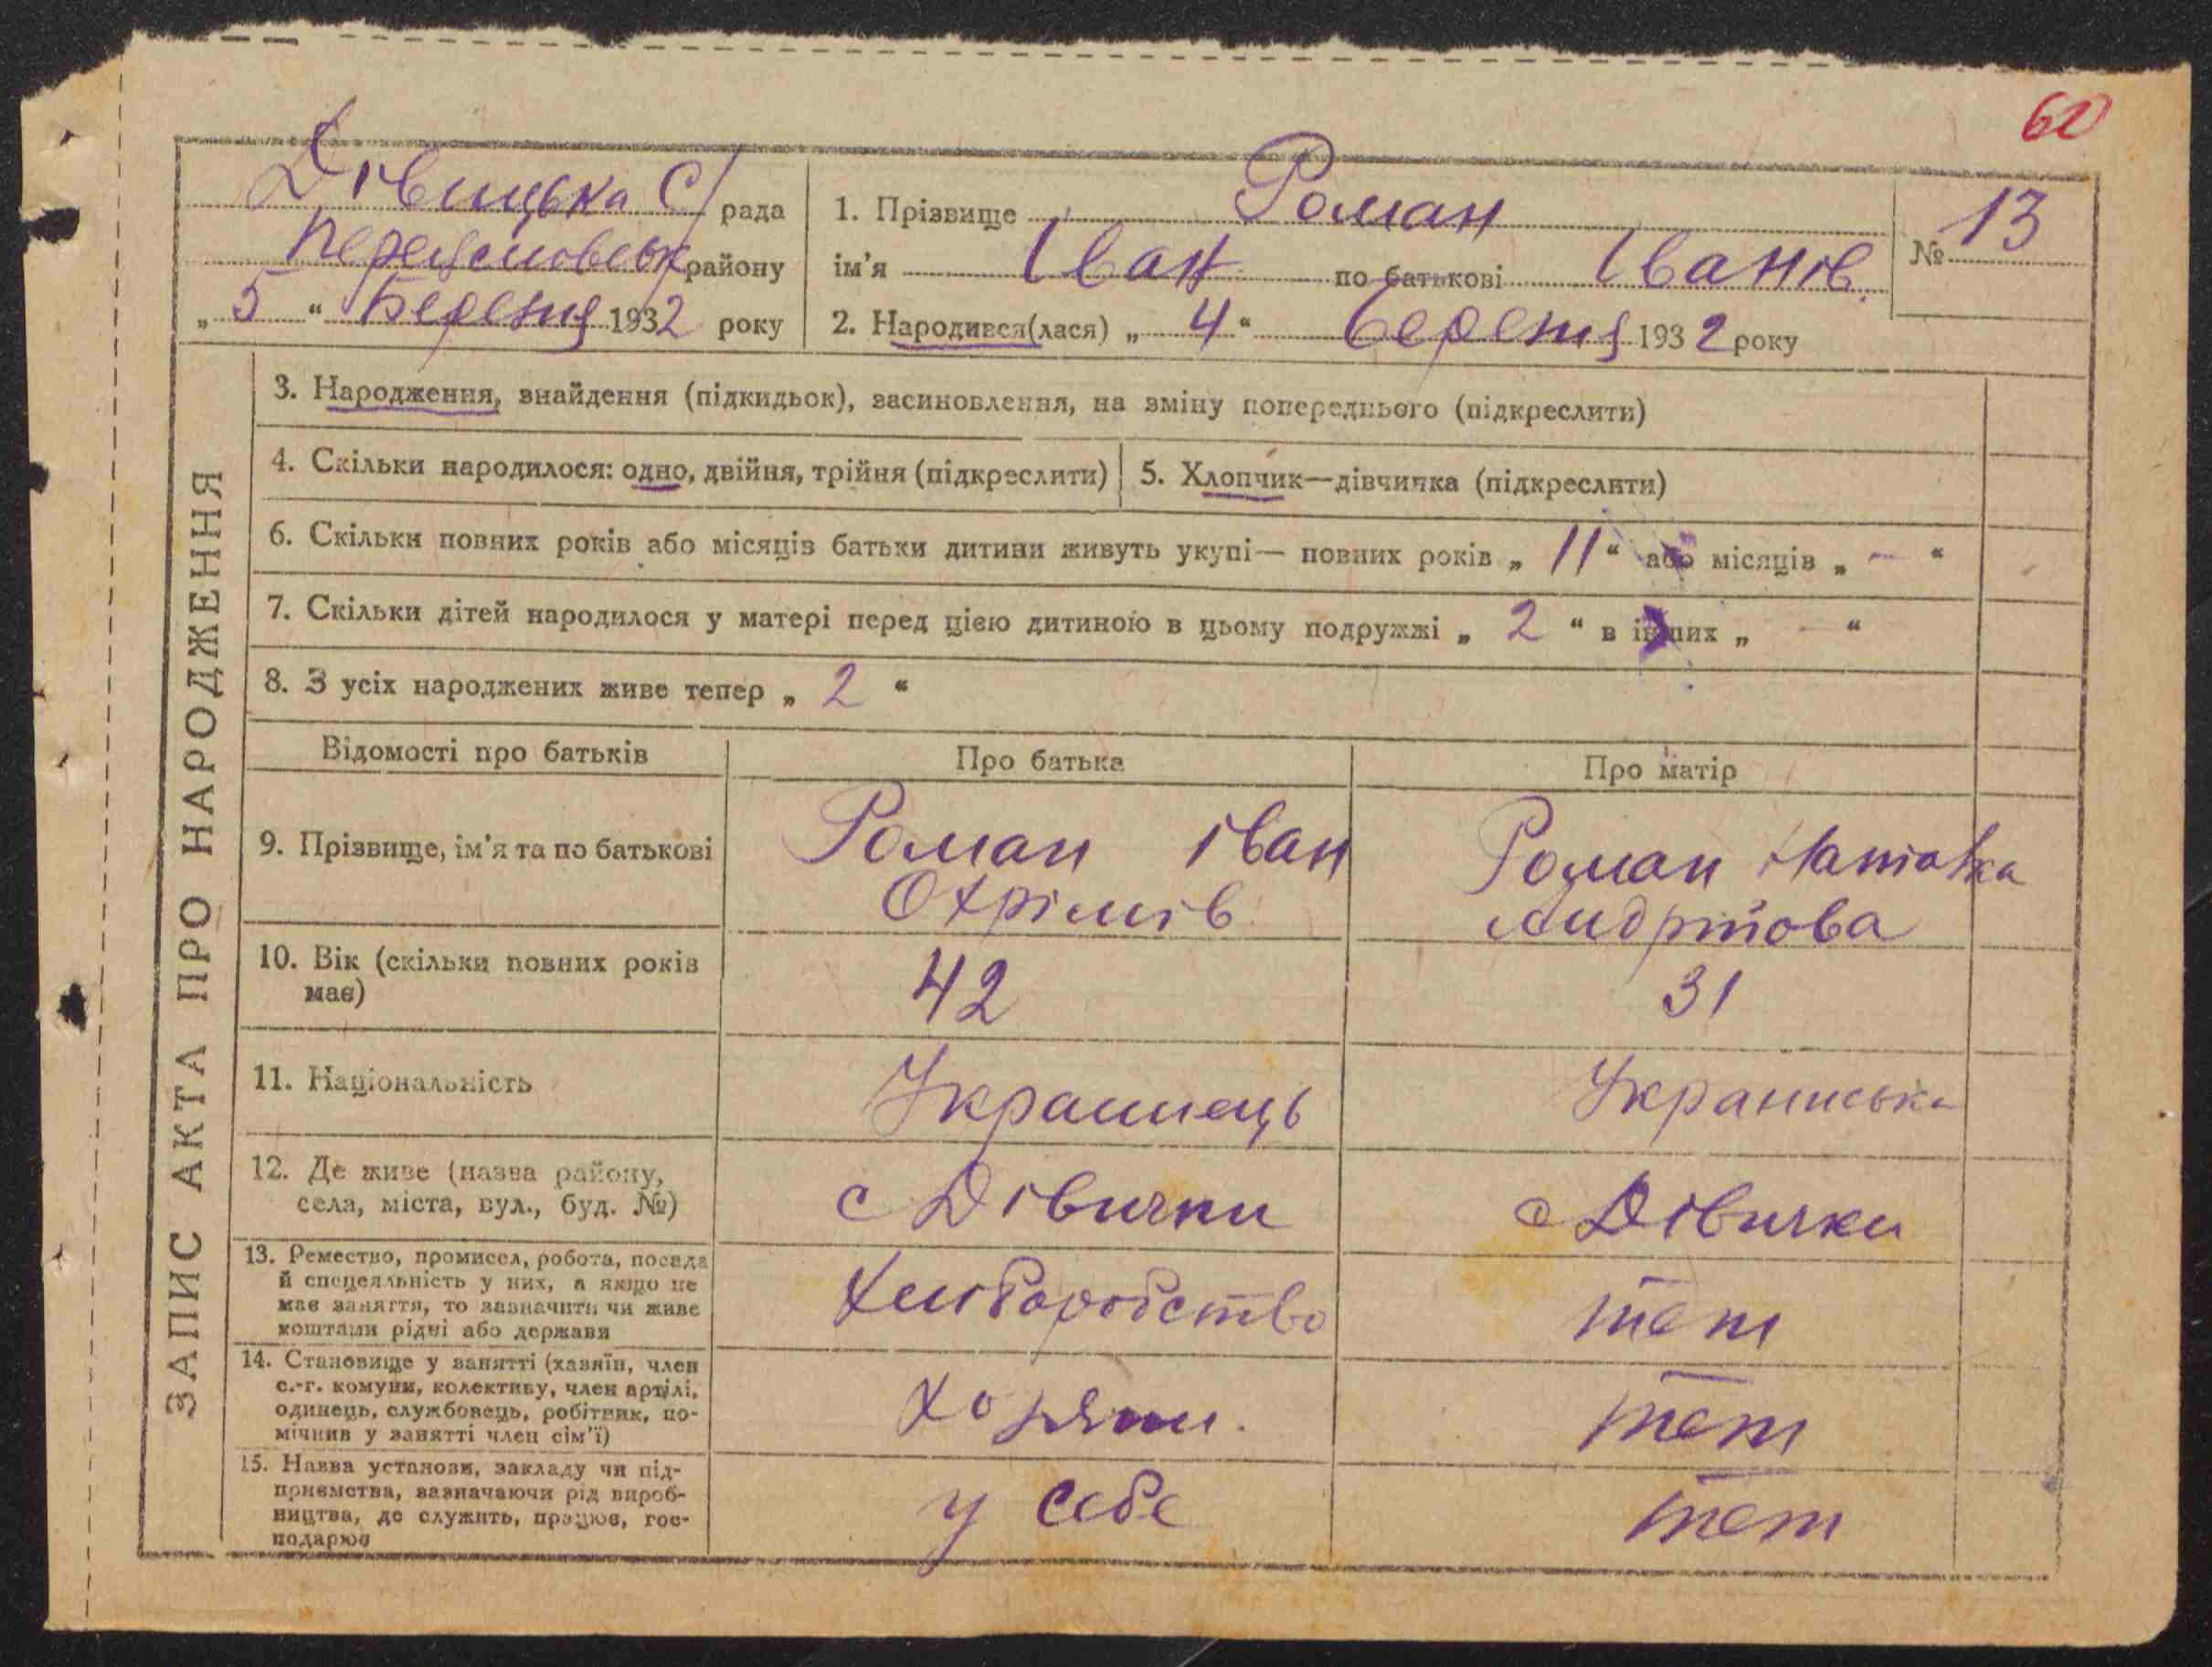 60
Дівицька С/рада
Переяславськ району
„ 5 “ Березня 1932 року
1. Прізвище Роман
ім'я Іван по батькові Іванів.
2. Народився(лася) „ 4 “ березня 1932 року
№ 13
ЗАПИС АКТА ПРО НАРОДЖЕННЯ
3. Народження, знайдення (підкидьок), засиновлення, на зміну попереднього (підкреслити)
4. Скільки народилося: одно, двійня, трійня (підкреслити)
5. Хлопчик—дівчинка (підкреслити)
6. Скільки повних років або місяців батьки дитини живуть укупі— повних років „ 11 “ або місяців „ — “
7. Скільки дітей народилося у матері перед цією дитиною в цьому подружжі „ 2 “ в інших „ — “
8. З усіх народжених живе тепер „ 2 “
Відомості про батьків
Про батька
Про матір
9. Прізвище, ім'я та по батькові
Роман Іван
Охрімів
Роман
10. Вік (скільки повних років
має)
42
31
11. Національність
Украинець
Украинська
12. Де живе (назва району,
села, міста, вул., буд. №)
с Дівички
с Дівички
13. Ремество, промисел, робота, посада
й спецеяльність у них, а якщо не
має заняття, то зазначити чи живе
коштами рідні або держави
Хлиборобство
теж
14. Становище у занятті (хазяїн, член
с.-г. комуни, колективу, член артілі,
одинець, службовець, робітник, по-
мічник у занятті член сім'ї)
теж
15. Назва установи, закладу чи під-
приємства, зазначаючи рід вироб-
ництва, де служить, працює, гос-
подарює
у себе
теж